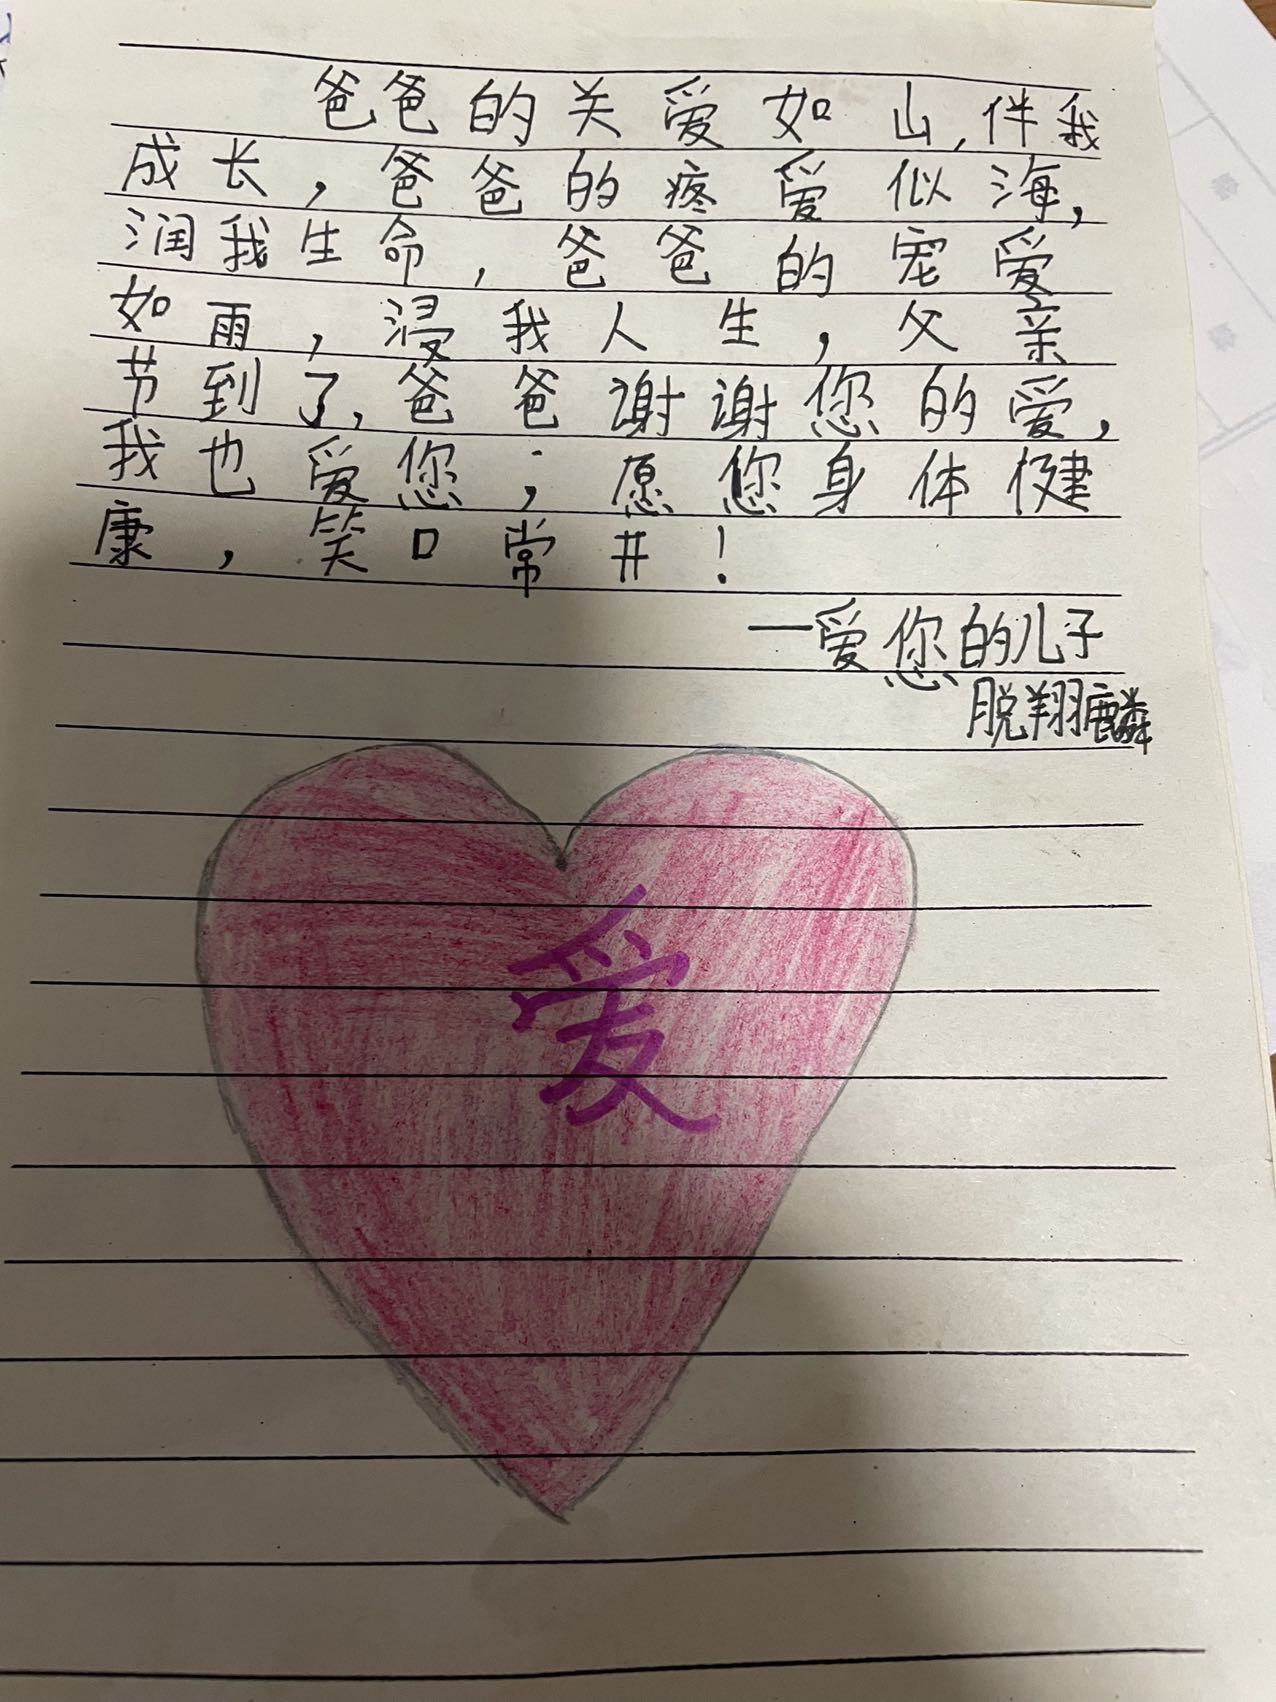 爸爸的关爱如山,伴我
成长,爸爸的疼爱似海,
润我生命,爸爸的宠爱
如雨,浸我人生,父亲
节到了,爸爸谢谢您的爱,
我也爱您;愿您身体健
康,笑口常开!
一爱您的儿子
脱翔麟
爱